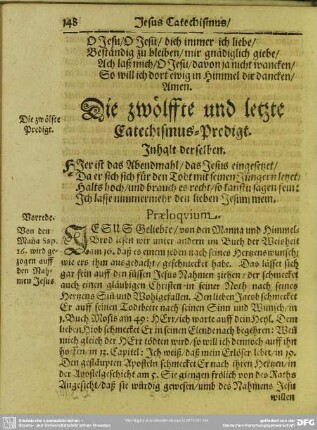 148 Jesus Catechismus/
O Jesu/O Jesu/ dich immer ich liebe/
Beständig zu bleiben/mir gnädiglich giebe/
Ach laß mich/O Jesu/davon ja nicht wancken/
So will ich dort ewig in Himmel dir dancken/
Amen.
Die zwölffte und letzte
Catechismus-Predigt.
Die zwölfte
Predigt.
Inhalt derselben.
HJer ist das Abendmahl/ das Jesus eingesetzet/
Da er sich für den Todt mit seinen Jüngern letzet/
Halts hoch/und brauch es recht/so kanstu sagen fein:
Ich lasse nimmermehr den lieben Jesum mein.
Præloqvium.
Vorrede.
Von den
Maña Sap.
16. wird ge-
zogen auff
den Nah-
men Jesus.
JESUS Geliebte/ von den Manna und Himmel-
Brod lesen wir unter andern im Buch der Weisheit
am 16. daß es einem ieden nach seines Hertzens wunsch/
wie ers ihm ausgedacht/ geschmecket habe. Das läßt sich
gar fein auff den süssen Jesus Nahmen ziehen/ der schmecket
auch einen gläubigen Christen in seiner Noth nach seines
Hertzens Siñ und Wohlgefallen. Den lieben Jacob schmecket
Er auff seinen Todtbett nach seinen Sinn und Wunsch/ in
1. Buch Mosis am 49: HErr/ich warte auff dein Heyl. Den
lieben Hiob schmecket Er in seinen Elende nach begehren: Weñ
mich gleich der HErr tödten wird/so will ich dennoch auff ihn
hoffen/in 13. Capitel: Ich weiß/ daß mein Erlöser lebet/in 19.
Den gestäupten Aposteln schmecket Er nach ihren Hertzen/ in
der Apostelgeschicht am 5. Sie giengen frölich von des Raths
Angesicht/daß sie würdig gewesen/und des Nahmens Jesu
willen
DFG